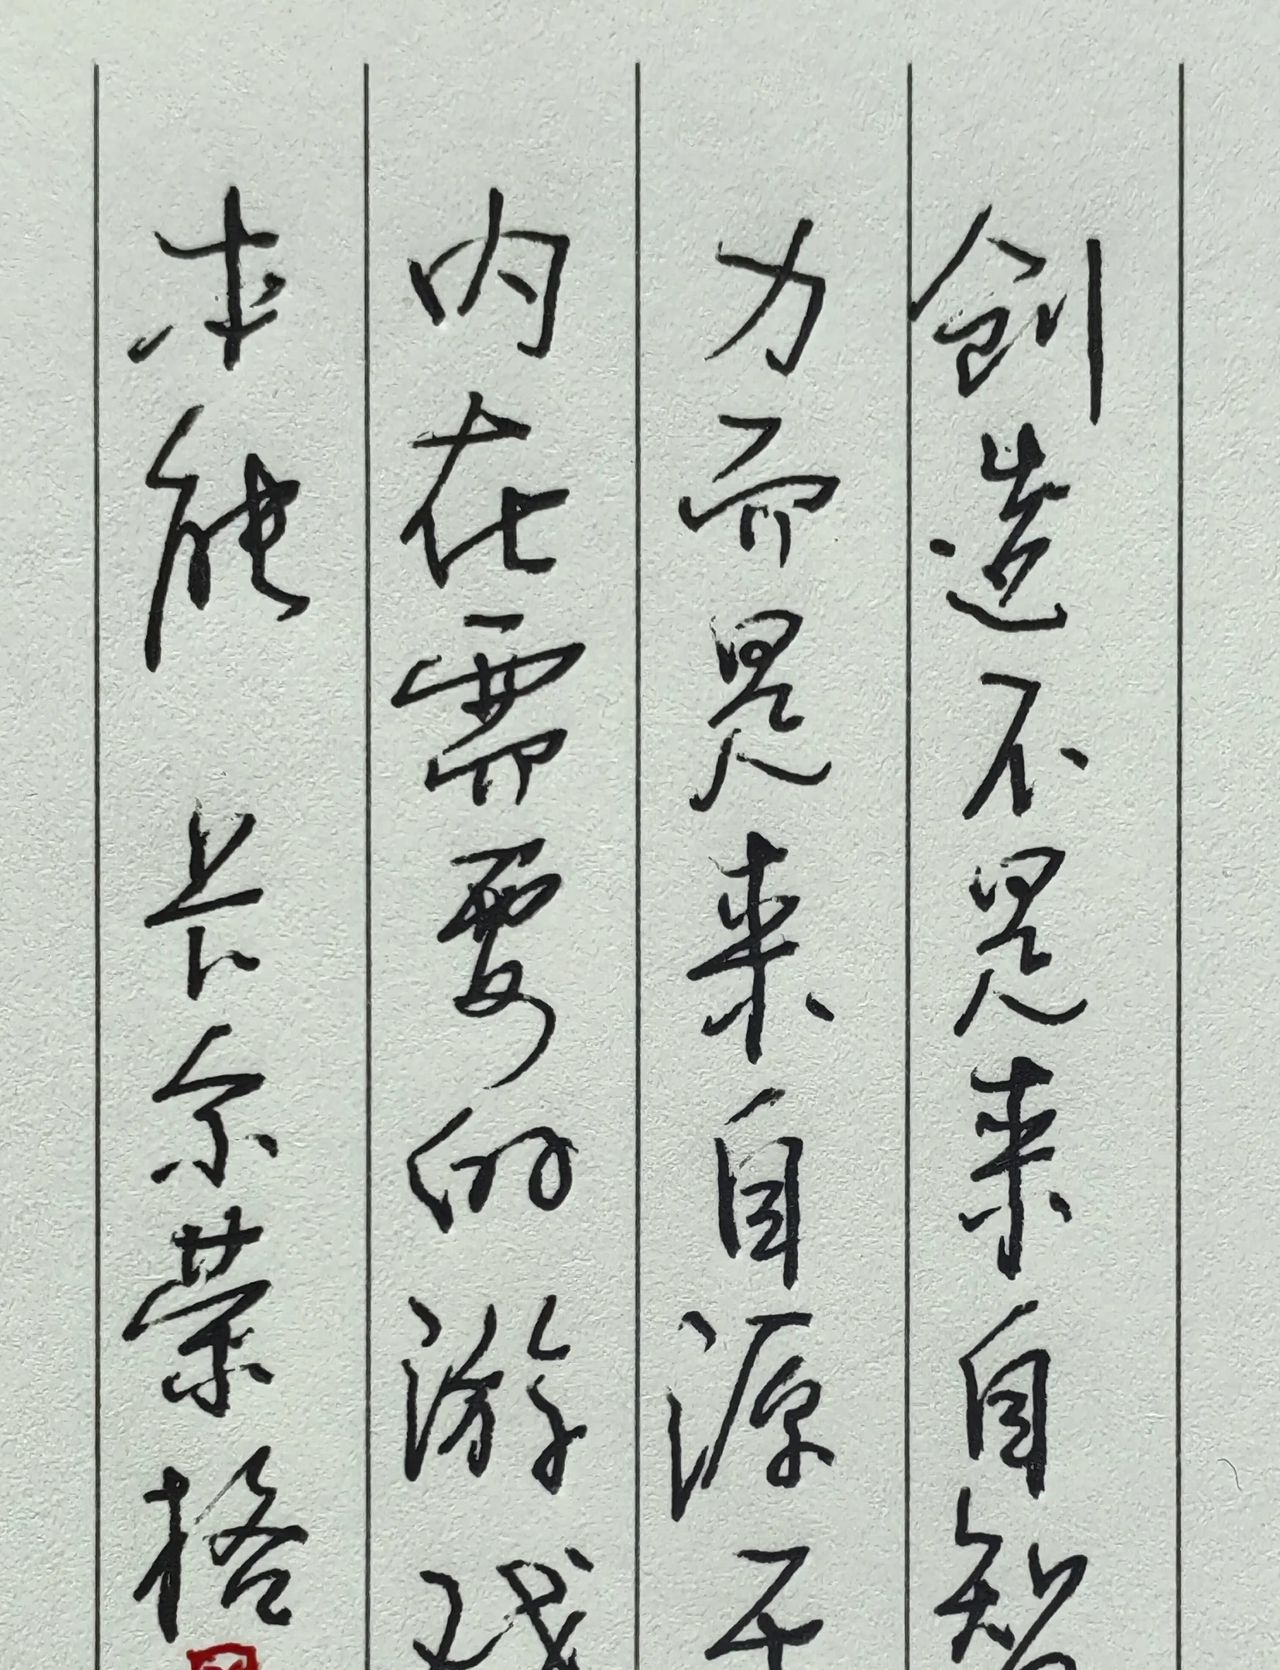 创造不是来自智
力而是来自源于
内在需要的游戏
本能 卡尔荣格